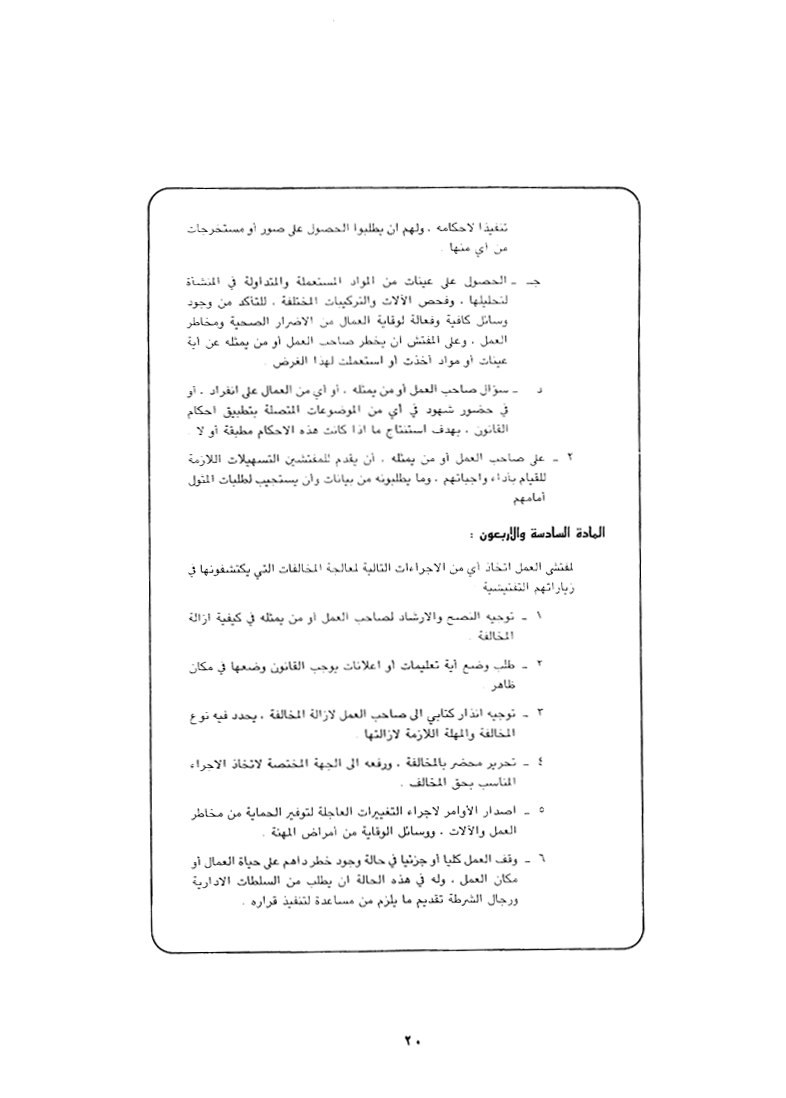 تنفيذا لاحكامه ، ولهم ان يطلبوا الحصول على صور أو مستخرجات
من أي منها .
جـ ـ الحصول على عينات من المواد المستعملة والمتداولة في المنشأة
لتحليلها ، وفحص الآلات والتركيبات المختلفة ، للتأكد من وجود
وسائل كافية وفعالة لوقاية العمال من الاضرار الصحية ومخاطر
العمل ، وعلى المفتش ان يخطر صاحب العمل أو من يمثله عن أية
عينات أو مواد أخذت أو استعملت لهذا الغرض .
د ـ سؤال صاحب العمل أو من يمثله ، أو أي من العمال على انفراد ، أو
في حضور شهود في أي من الموضوعات المتصلة بتطبيق احكام
القانون ، بهدف استنتاج ما اذا كانت هذه الاحكام مطبقة أو لا .
٢ ـ على صاحب العمل أو من يمثله ، أن يقدم للمفتشين التسهيلات اللازمة
للقيام بأداء واجباتهم ، وما يطلبونه من بيانات وأن يستجيب لطلبات المثول
أمامهم
المادة السادسة والأربعون :
لمفتشى العمل اتخاذ أي من الاجراءات التالية لمعالجة المخالفات التي يكتشفونها في
زياراتهم التفتيشية
١ ـ توجيه النصح والارشاد لصاحب العمل أو من يمثله في كيفية ازالة
المخالفة .
٢ ـ طلب وضع أية تعليمات أو اعلانات يوجب القانون وضعها في مكان
ظاهر .
٣ ـ توجيه انذار كتابي الى صاحب العمل لازالة المخالفة ، يحدد فيه نوع
المخالفة والمهلة اللازمة لازالتها .
٤ ـ تحرير محضر بالمخالفة ، ورفعه الى الجهة المختصة لاتخاذ الاجراء
المناسب بحق المخالف .
٥ ـ اصدار الأوامر لاجراء التغييرات العاجلة لتوفير الحماية من مخاطر
العمل والآلات ، ووسائل الوقاية من أمراض المهنة .
٦ ـ وقف العمل كليا أو جزئيا في حالة وجود خطر داهم على حياة العمال أو
مكان العمل ، وله في هذه الحالة ان يطلب من السلطات الادارية
ورجال الشرطة تقديم ما يلزم من مساعدة لتنفيذ قراره .
٢٠